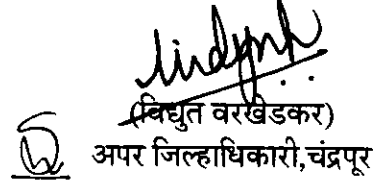 (विद्युत वरखेडकर)
अपर जिल्हाधिकारी,चंद्रपूर